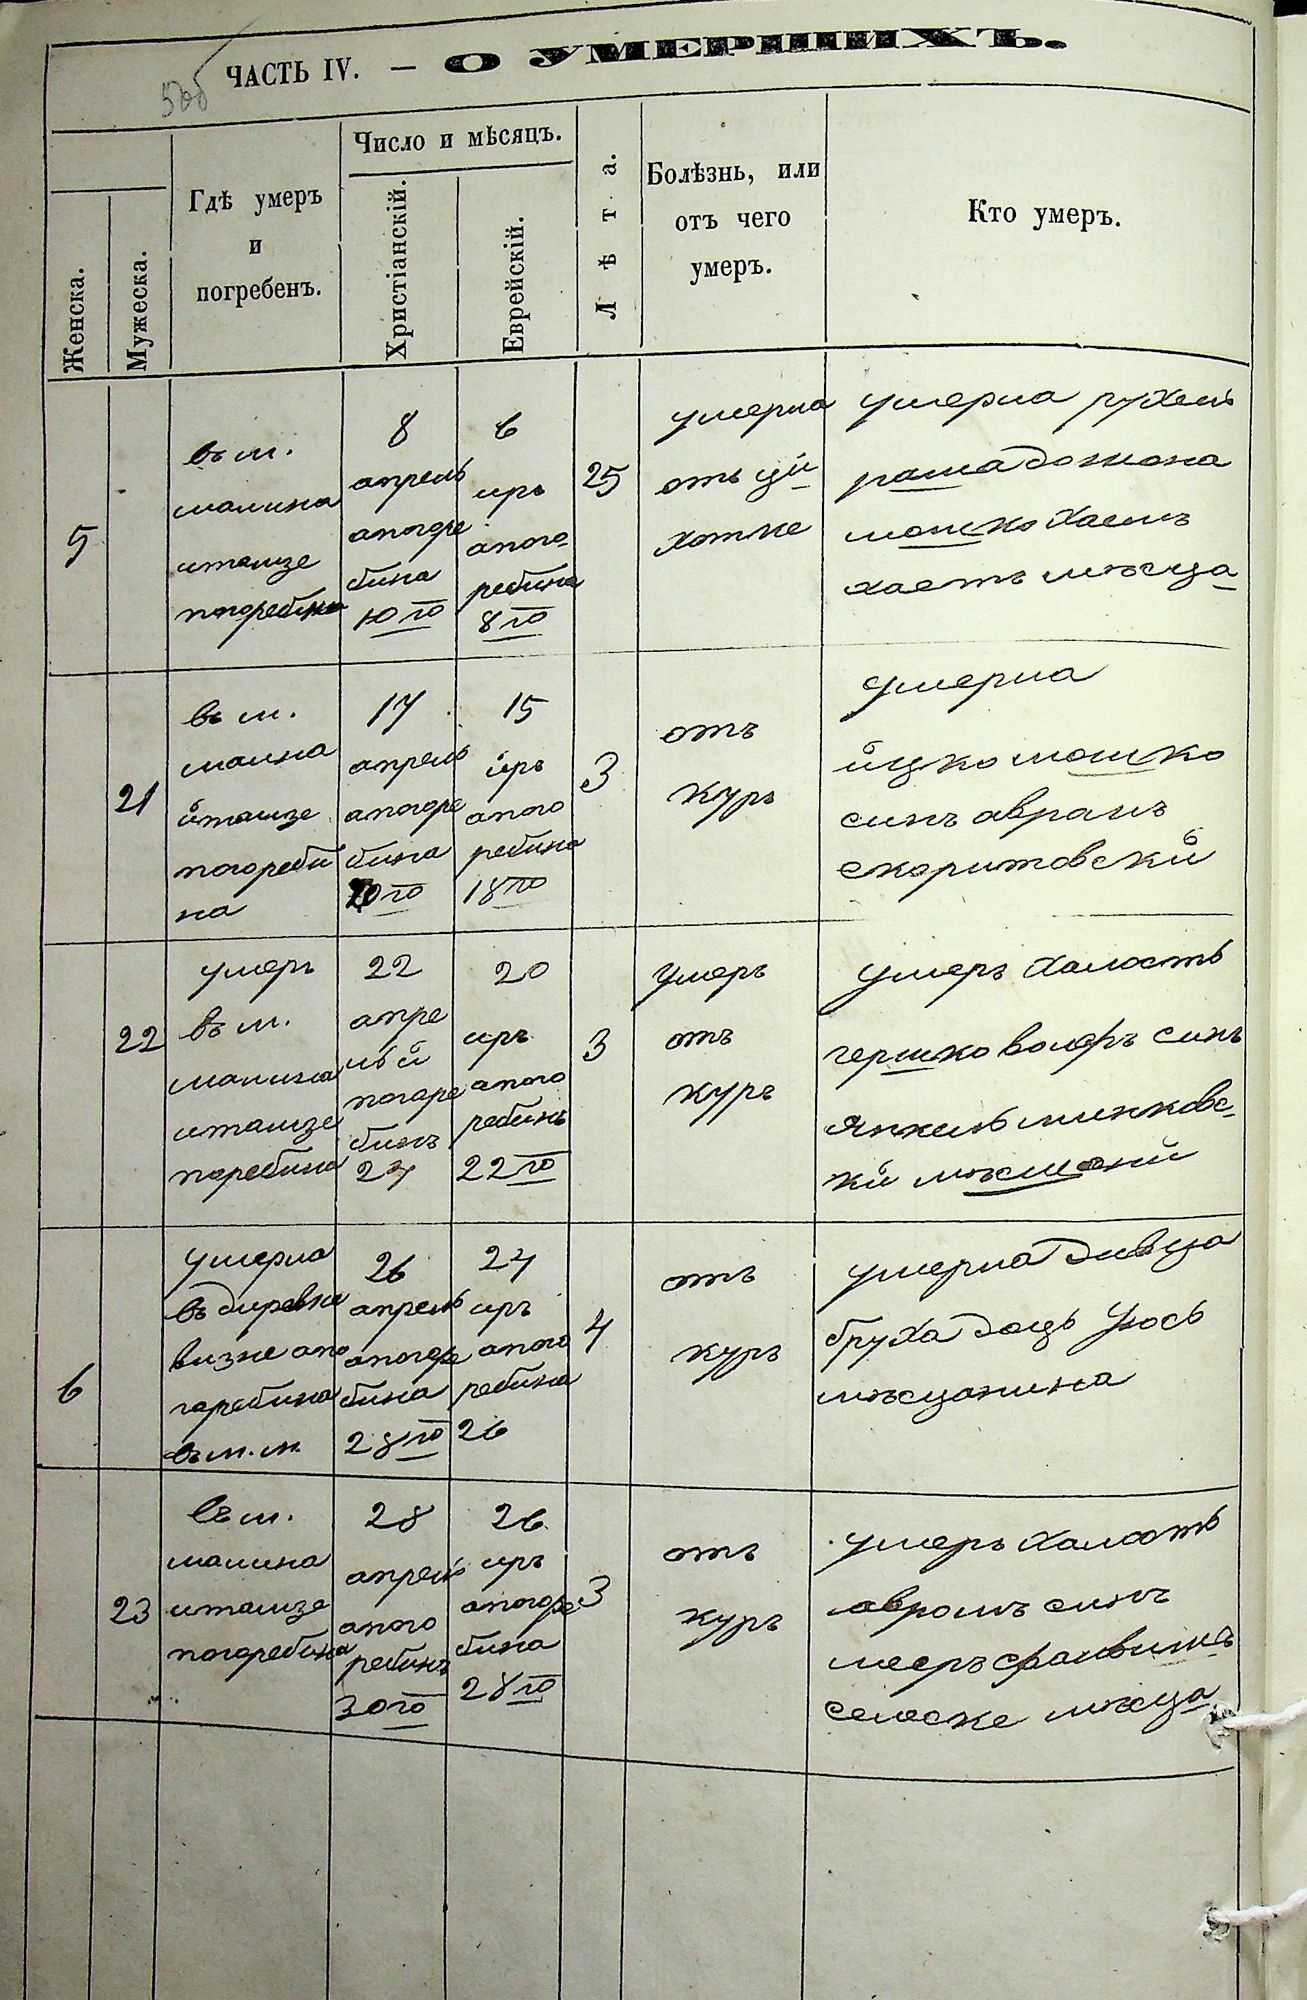 ЧАСТЬ IV. — О УМЕРШИХЪ.
Женска.
Мужеска.
Гдѣ умеръ
и
погребенъ.
Число и мѣсяцъ.
Христіанскій.
Еврейскій.
Лѣта.
Болѣзнь, или
отъ чего
умеръ.
Кто умеръ.
5
въ м.
малина
итамзе
погребина
8
апрель
апогре
бина
10го
6
иръ
апого
ребина
8го
25
умерла
отъ чи
хотке
умерла рухель
раша до жона
мошко хаемъ
хаетъ мѣсца
21
въ м.
малина
йтамзе
погреби
на
17
апрель
апогре
бина
20го
15
йръ
апого
ребина
18го
3
отъ
куръ
умерла
йцко мошко
синъ аврамъ
скоритовскй
22
умеръ
въ м.
малина
итамзе
поребина
22
апре
ль й
погоре
бинъ
24
20
иръ
апого
ребинъ
22го
3
умеръ
отъ
куръ
умеръ халость
гершко волфъ синъ
янкель минковс
кй
6
умерла
въ диревне
визне апо
гребина
въ м. м.
26
апрель
апогре
бина
28го
24
иръ
апого
ребина
26
4
отъ
куръ
умерла дивица
бруха доць Уюсь
мѣсцанина
23
въ м.
малина
итамзе
погребина
28
апрель
апого
ребинъ
30го
26
иръ
апогре
бина
28го
3
отъ
куръ
умеръ халость
авромъ синъ
мееръ
селоске мѣсца